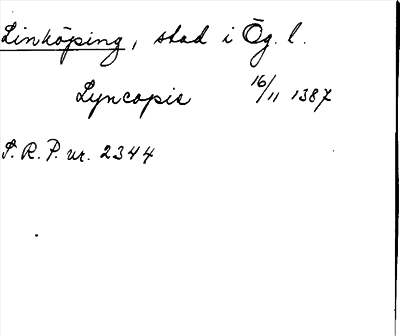 Linköping, stad i Ög. l.
Lyncopie 16/11 1387
S. R. P. nr. 2344